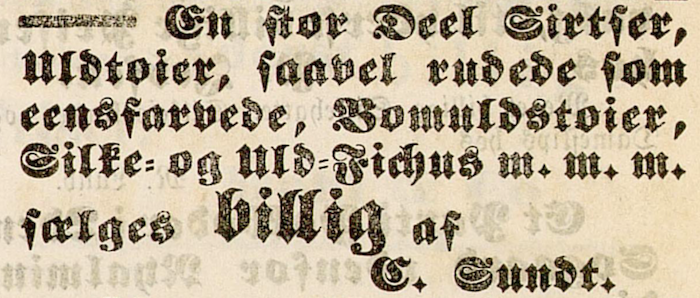 En stor Deel Sirtser,
Uldtoier, saavel rudede som
eensfarvede, Bomuldstoier,
Silke- og Uld-Fichus m. m. m.
sælges billig af
C. Sundt.